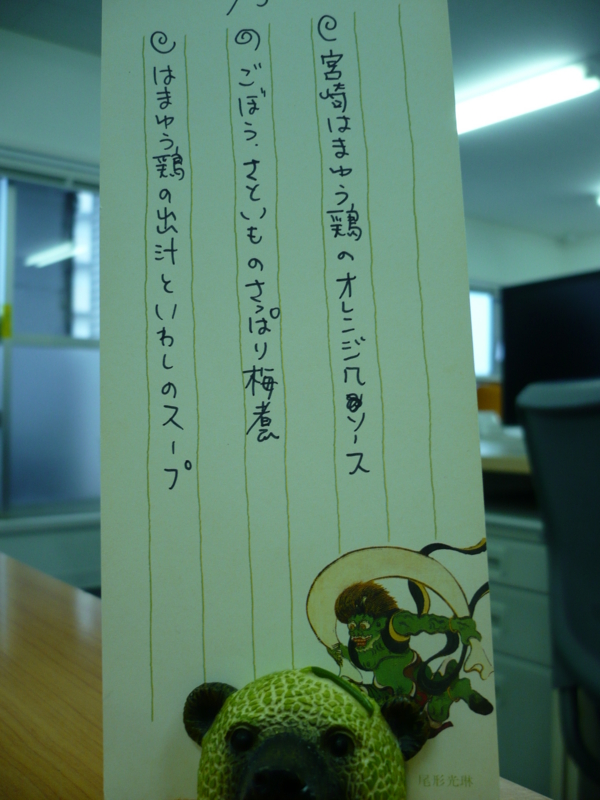 宮崎はまゆう鶏のオレンジソース
のごぼう、さといものさっぱり梅煮
はまゆう鶏の出汁といわしのスープ
尾形光琳